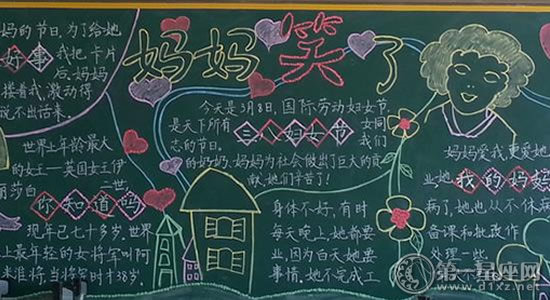 妈妈笑了
妈的节日,为了给她
好事 我把卡片
后,妈妈
搂着我,激动得
说不出话来。
世界上年龄最大
的女王—英国女王伊
丽莎白 二世
你知道吗
现年已七十多岁.世界
上最年轻的女将军叫阿
米准将,当将军时才38岁.
今天是3月8日,国际劳动妇女节
是天下所有 三八妇女节 女同
志的节日. 我们
的妈妈,妈妈为社会做出了巨大的贡
献,她们辛苦了!
身体不好,有时
每天晚上,她都要
业,因为白天她要
事情.她不完成工
妈妈爱我,更爱她
业,她 我的妈妈
病了,她也从不休病
备课和批改作
处理一些
第一星座网
www.d1xz.net